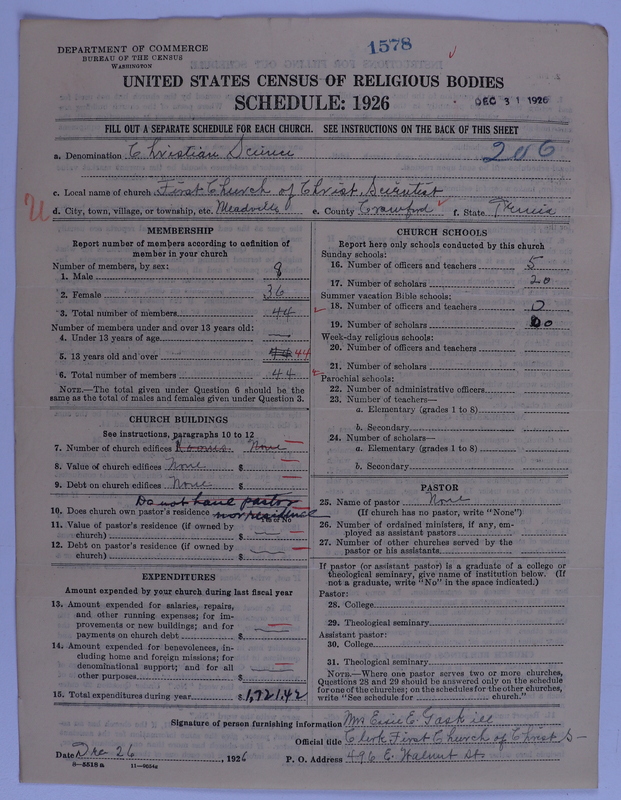 DEPARTMENT OF COMMERCE
BUREAU OF THE CENSUS
WASHINGTON
1578
UNITED STATES CENSUS OF RELIGIOUS BODIES
SCHEDULE: 1926
DEC 31 1926
FILL OUT A SEPARATE SCHEDULE FOR EACH CHURCH. SEE INSTRUCTIONS ON THE BACK OF THIS SHEET
a. Denomination Christian Science 206
c. Local name of church First Church of Christ, Scientist
d. City, town, village, or township, etc. Meadville e. County Crawford f. State
MEMBERSHIP
Report number of members according to definition of
member in your church
Number of members, by sex:
1. Male 8
2. Female 36
3. Total number of members 44
Number of members under and over 13 years old:
4. Under 13 years of age
5. 13 years old and over 44 44
6. Total number of members 44
NOTE.—The total given under Question 6 should be
same as the total of males and females given under Question 3.
CHURCH BUILDINGS
See instructions, paragraphs 10 to 12
7. Number of church edifices None
8. Value of church edifices None $
9. Debt on church edifices None $
Do not have pastor
10. Does church own pastor's residence nor residence
Yes or No
11. Value of pastor's residence (if owned by
church) $
12. Debt on pastor's residence (if owned by
church) $
EXPENDITURES
Amount expended by your church during last fiscal year
13. Amount expended for salaries, repairs,
and other running expenses; for im-
provements or new buildings; and for
payments on church debt $
14. Amount expended for benevolences, in-
cluding home and foreign missions; for
denominational support; and for all
other purposes $
15. Total expenditures during year $1,721.42
CHURCH SCHOOLS
Report here only schools conducted by this church
Sunday schools:
16. Number of officers and teachers 5
17. Number of scholars 20
Summer vacation Bible schools:
18. Number of officers and teachers 0
19. Number of scholars 0
Week-day religious schools:
20. Number of officers and teachers
21. Number of scholars
Parochial schools:
22. Number of administrative officers
23. Number of teachers—
a. Elementary (grades 1 to 8)
b. Secondary
24. Number of scholars—
a. Elementary (grades 1 to 8)
b. Secondary
PASTOR
25. Name of pastor None
(If church has no pastor, write "None")
26. Number of ordained ministers, if any, em-
ployed as assistant pastors
27. Number of other churches served by the
pastor or his assistants
If pastor (or assistant pastor) is a graduate of a college or
theological seminary, give name of institution below. (If
not a graduate, write "No" in the space indicated.)
Pastor:
28. College
29. Theological seminary
Assistant pastor:
30. College
31. Theological seminary
NOTE.—Where one pastor serves two or more churches,
Questions 28 and 29 should be answered only on the schedule
for one of the churches; on the schedules for the other churches,
write "See schedule for church."
Signature of person furnishing information Mrs Essie E. Gaskill
Official title Clerk First Church of Christ S—
Date Dec 26, 1926 P. O. Address 496 E. Walnut St.
8—5518a 11—9054a